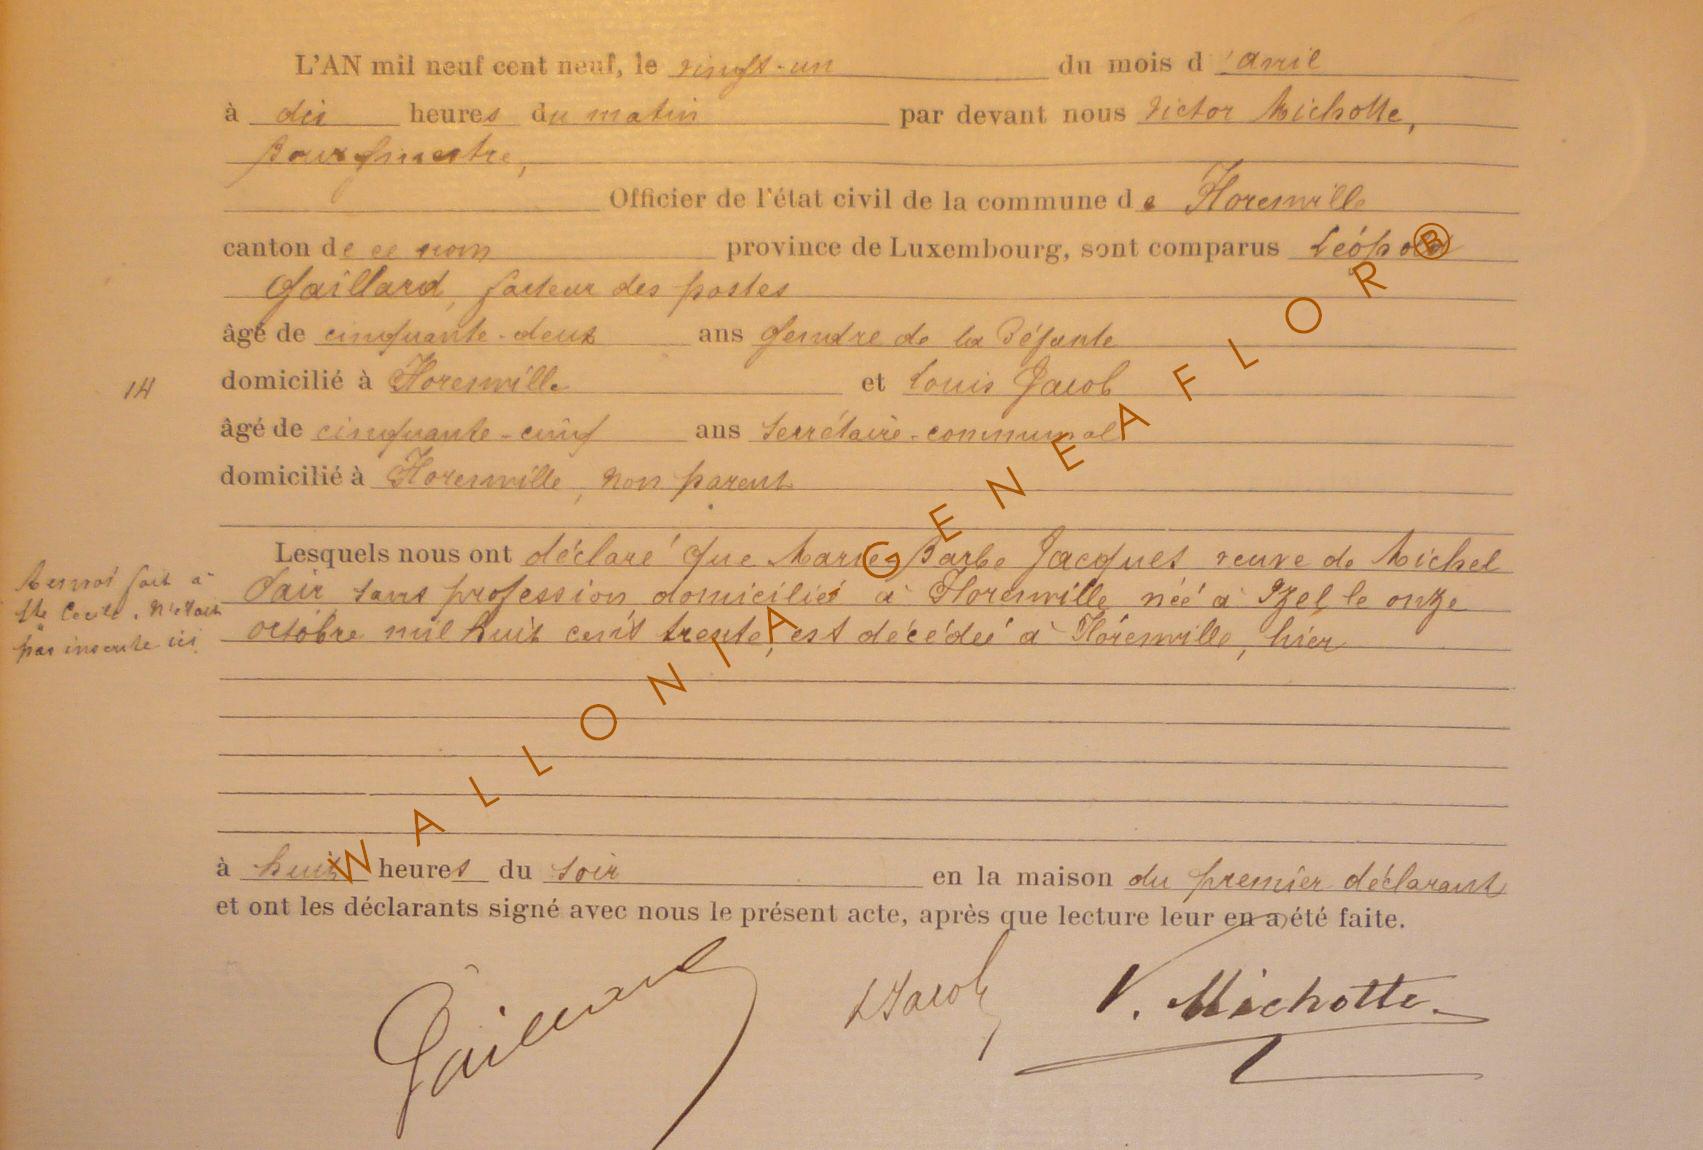 L'AN mil neuf cent neuf, le vingt-un du mois d'avril
à dix heures du matin par devant nous Victor Michotte,
Bourgmestre,
Officier de l'état civil de la commune de Florenville
canton de ce nom province de Luxembourg, sont comparus Léopold
Gaillard, facteur des postes
âgé de cinquante-deux ans gendre de la Défunte
domicilié à Florenville et Louis Jacob
14
âgé de cinquante-cinq ans secrétaire-communal
domicilié à Florenville, non parent
Lesquels nous ont déclaré que Marie Barbe Jacques veuve de Michel
sans profession domiciliée à Florenville née à Izel le onze
octobre mil huit cent trente, est décédée à Florenville, hier
Renvoi fait à
Ste Cécile. N'était
pas inscrite ici.
à huit heures du soir en la maison du premier déclarant
et ont les déclarants signé avec nous le présent acte, après que lecture leur en a été faite.
Gaillard LJacob V. Michotte
WALLONIA GENEAFLOR®